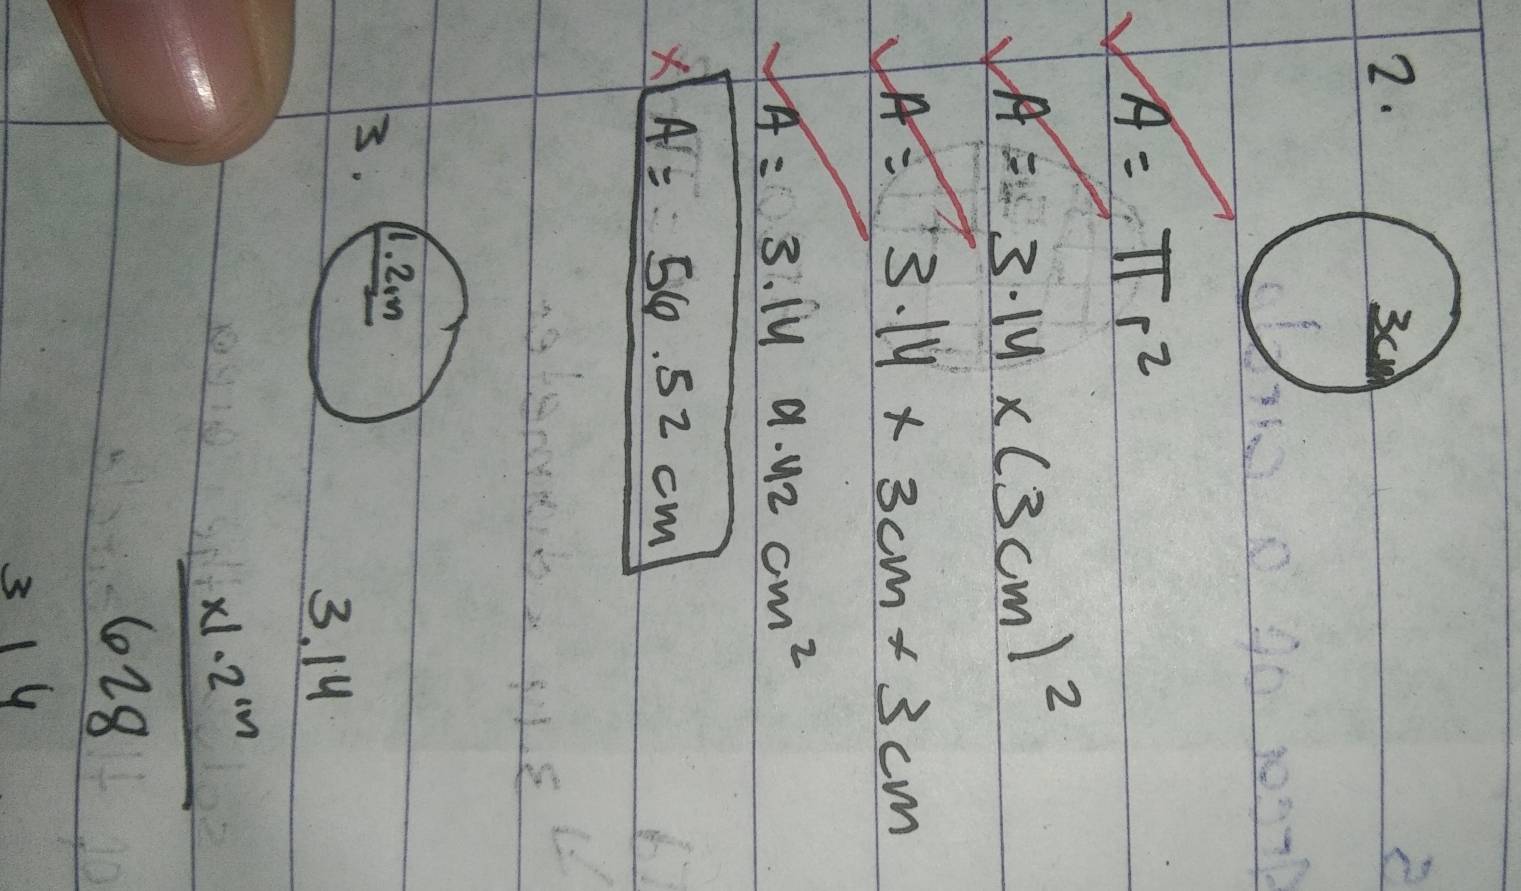 2.
3cm
A = πr²
A = 3.14 x (3cm)²
A = 3.14 x 3cm x 3cm
A = 3.14 9.42 cm²
A = 56.52 cm
3.
1.2m
3.14
x1.2m
628
314